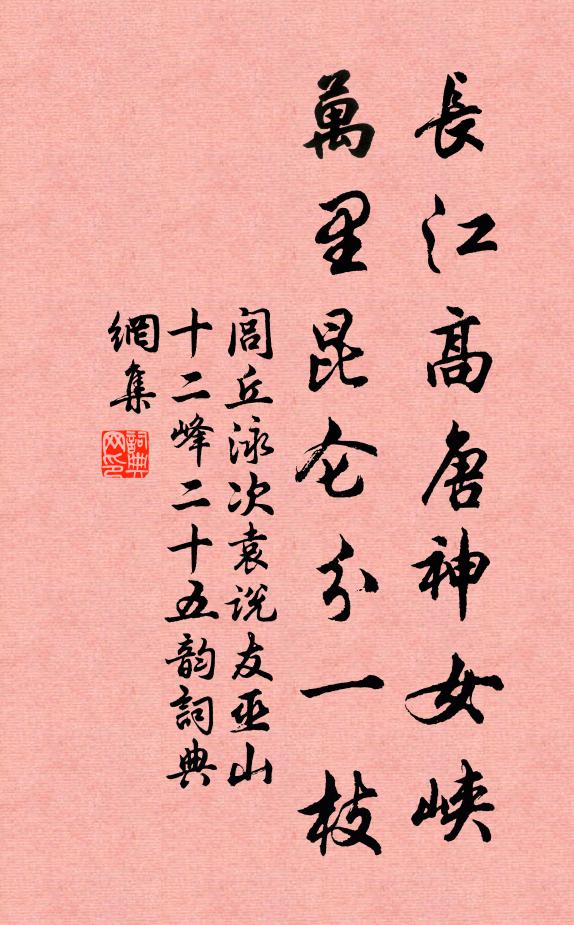 長江高唐神女峽
萬里昆仑分一枝
閭丘泳次袁说友巫山
十二峰二十五韵詞典
網集
詞典
网印